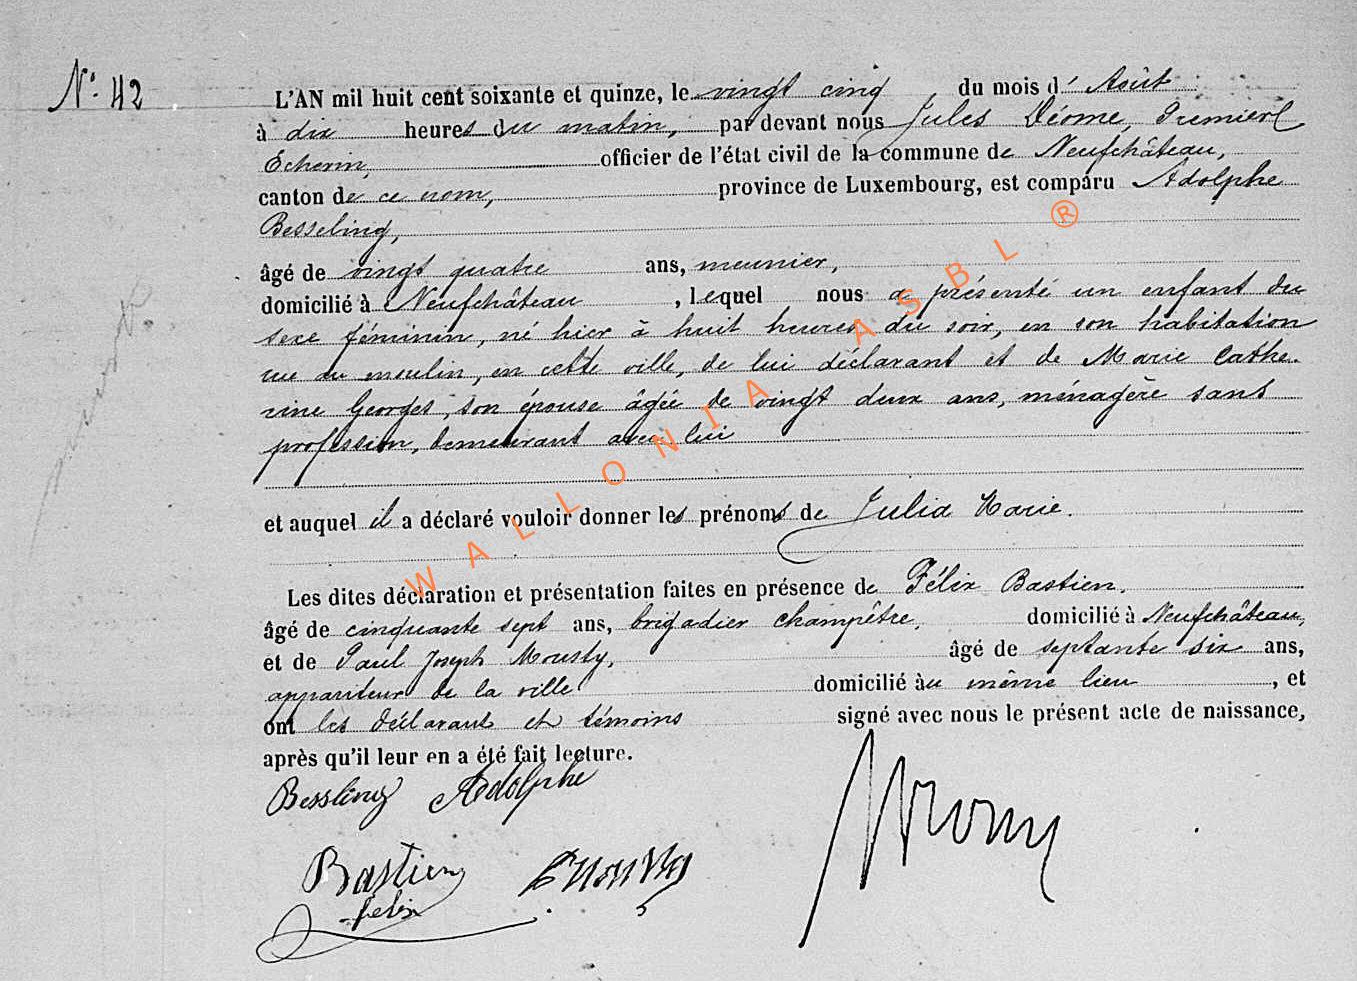 N° 42
L'AN mil huit cent soixante et quinze, le vingt cinq du mois d' Août
à dix heures du matin, par devant nous Jules Déome, Premier
Echevin, officier de l'état civil de la commune de Neufchâteau,
canton de ce nom, province de Luxembourg, est comparu Adolphe
Besseling,
âgé de vingt quatre ans, meunier,
domicilié à Neufchâteau, lequel nous a présenté un enfant du
sexe féminin, né hier à huit heures du soir, en son habitation
rue du moulin, en cette ville, de lui déclarant et de Marie Cathe-
rine Georges, son épouse âgée de vingt deux ans, ménagère sans
profession, demeurant avec lui
et auquel il a déclaré vouloir donner les prénoms de Julia Marie.
Les dites déclaration et présentation faites en présence de Félix Bastien.
âgé de cinquante sept ans, brigadier champêtre, domicilié à Neufchâteau,
et de Paul Joseph Mousty, âgé de septante six ans,
appariteur de la ville domicilié au même lieu, et
ont les déclarant et témoins signé avec nous le présent acte de naissance,
après qu'il leur en a été fait lecture.
Bessling Adolphe
Bastien
felix
WALLONIA ASBL ®